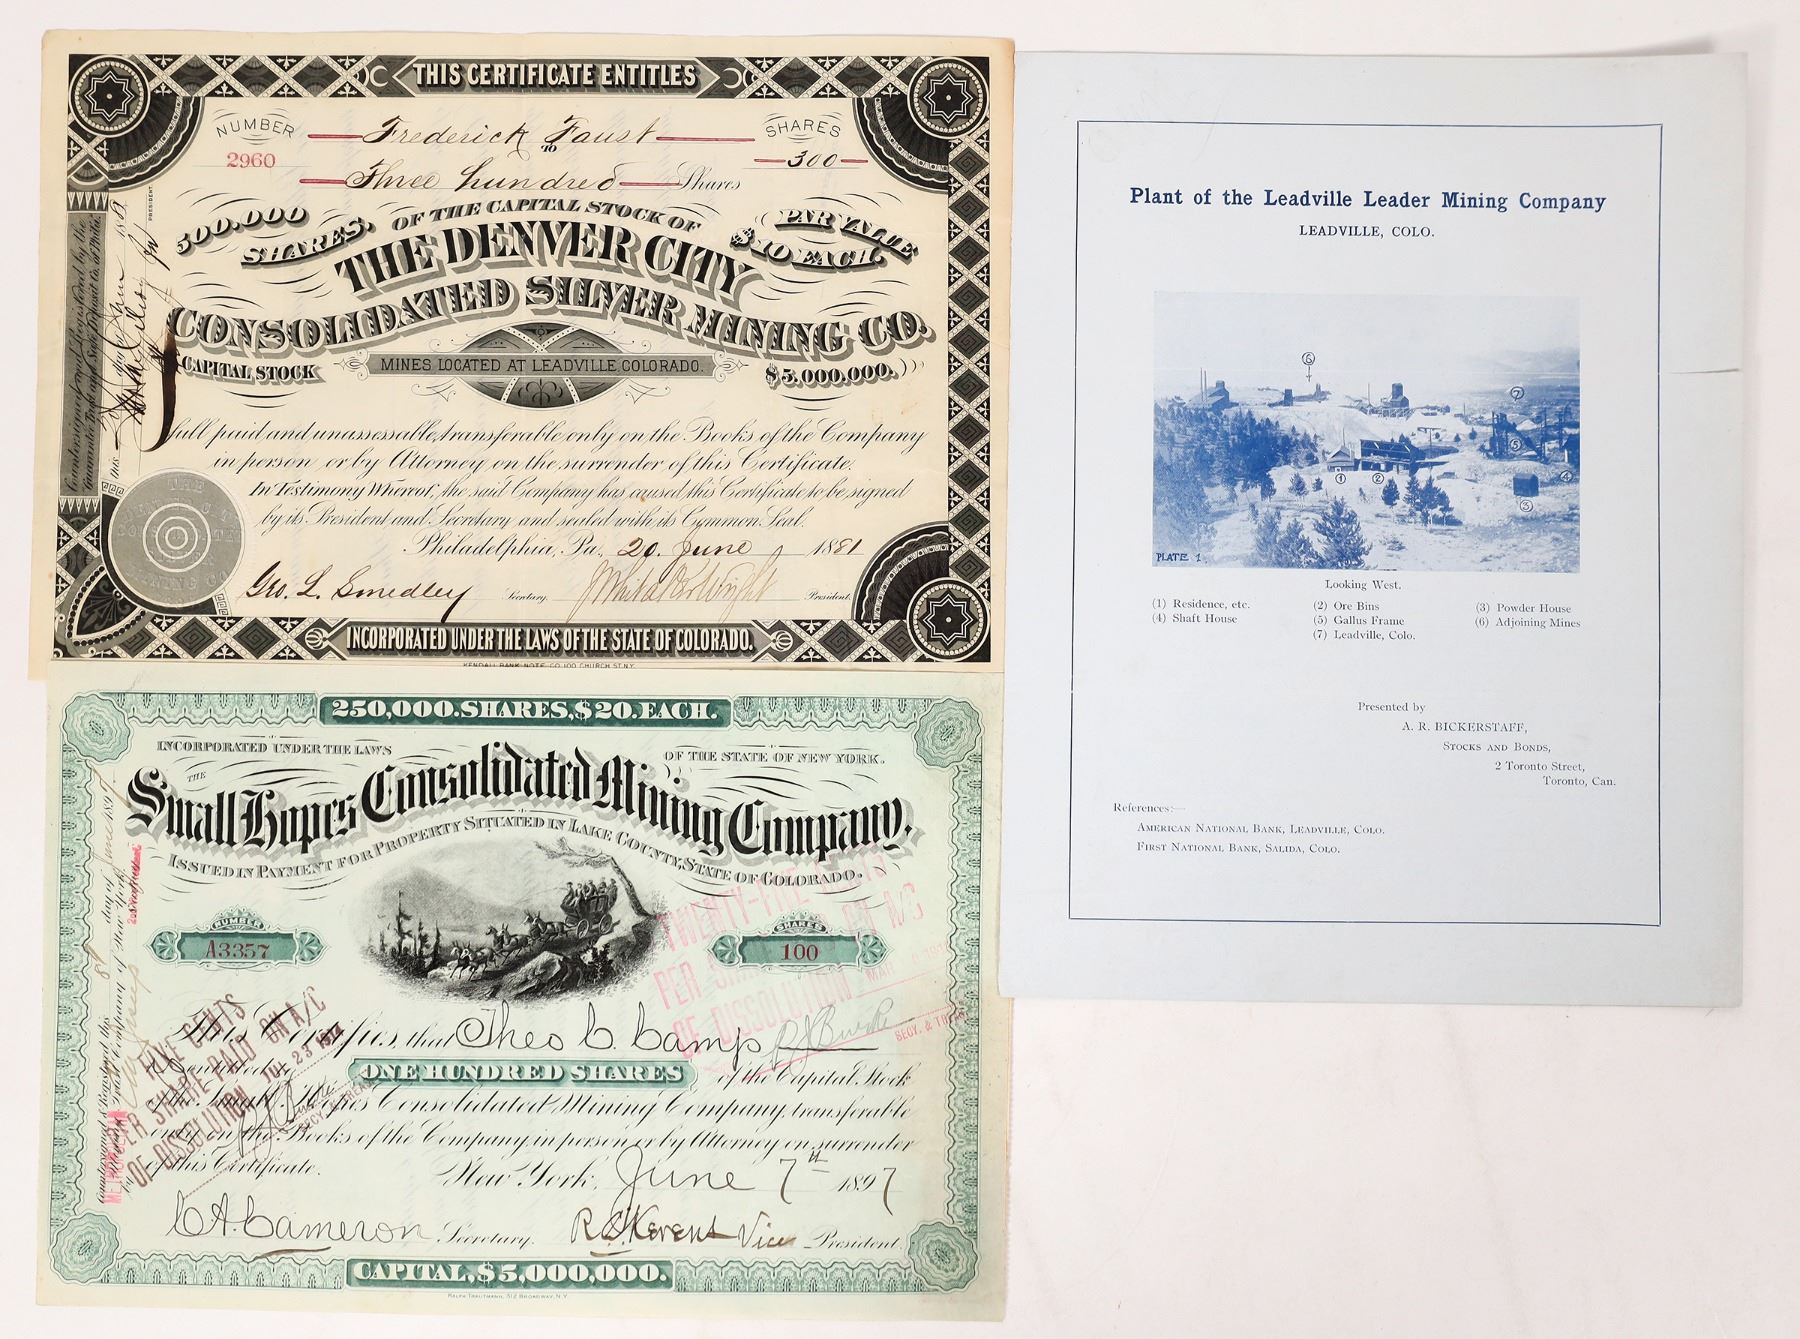 THIS CERTIFICATE ENTITLES
NUMBER
2960
Frederick Faust
TO
SHARES
300
Three hundred Shares
500.000 SHARES,
OF THE CAPITAL STOCK OF
PAR VALUE $10 EACH.
THE DENVER CITY
CONSOLIDATED SILVER MINING CO.
CAPITAL STOCK
MINES LOCATED AT LEADVILLE, COLORADO.
$5.000.000.
full paid and unassessable, transferable only on the Books of the Company
in person or by Attorney on the surrender of this Certificate.
In Testimony Whereof, the said Company has caused this Certificate to be signed
by its President and Secretary and sealed with its Common Seal.
Philadelphia, Pa., 20 June 1881
Geo. L. Smedley Secretary. President.
INCORPORATED UNDER THE LAWS OF THE STATE OF COLORADO.
KENDALL BANK NOTE CO. 100 CHURCH ST. N.Y.
Countersigned and Registered by the
Guarantee Trust and Safe Deposit Co. of Phila.
this day of June 188
PRESIDENT.
250,000.SHARES,$20.EACH.
INCORPORATED UNDER THE LAWS
OF THE STATE OF NEW YORK.
THE
Small Hopes Consolidated Mining Company.
ISSUED IN PAYMENT FOR PROPERTY SITUATED IN LAKE COUNTY, STATE OF COLORADO.
NUMBER
A3357
SHARES
100
This Certifies, that Theo C. Camp
is entitled to ONE HUNDRED SHARES of the Capital Stock
of the Small Hopes Consolidated Mining Company, transferable
only on the Books of the Company, in person or by Attorney on surrender
of this Certificate.
New York, June 7th 1897
C A Cameron Secretary. Vice President.
CAPITAL, $5,000,000.
RALPH TRAUTMANN, 312 BROADWAY, N.Y.
TWENTY-FIVE CENTS
PER SHARE PAID ON A/C
OF DISSOLUTION
SECY. & TREAS.
FIVE CENTS
PER SHARE PAID ON A/C
OF DISSOLUTION JUL 23
SECY. & TREAS.
day of June 1897
METROPOLITAN
Trust Company of New York.
Plant of the Leadville Leader Mining Company
LEADVILLE, COLO.
6
7
5
4
1
2
3
PLATE 1.
Looking West.
(1) Residence, etc. (2) Ore Bins (3) Powder House
(4) Shaft House (5) Gallus Frame (6) Adjoining Mines
(7) Leadville, Colo.
Presented by
A. R. BICKERSTAFF,
STOCKS AND BONDS,
2 Toronto Street,
Toronto, Can.
References:—
AMERICAN NATIONAL BANK, LEADVILLE, COLO.
FIRST NATIONAL BANK, SALIDA, COLO.